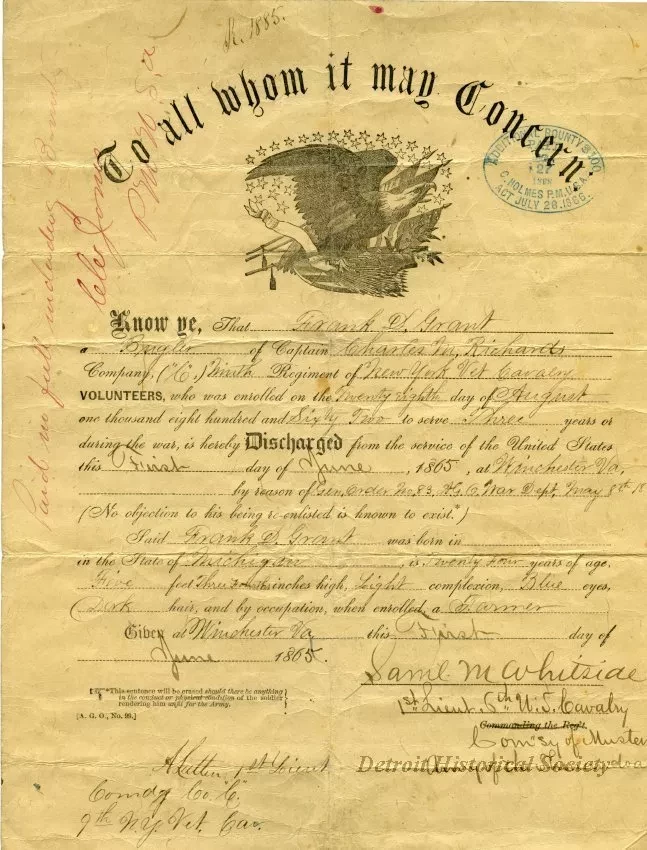 R. 1885.
To all whom it may Concern:
ADDITIONAL BOUNTY $100
27
C. HOLMES P.M.U.S.A.
ACT JULY 28.1866.
Paid in full including Bounty
P.M. U.S.A.
Know ye, That Frank D. Grant
a Bugler of Captain Charles M. Richards
Company, ("C",) Ninth Regiment of New York Vet Cavalry
VOLUNTEERS, who was enrolled on the Twenty eighth day of August
one thousand eight hundred and Sixty Two to serve Three years or
during the war, is hereby Discharged from the service of the United States
this First day of June, 1865, at Winchester Va,
by reason of Gen. Order No. 83, A.G.O. War Dept. May 8th 18
(No objection to his being re-enlisted is known to exist.*)
Said Frank D. Grant was born in
in the State of Michigan, is Twenty four years of age,
Five feet Three inches high, Light complexion, Blue eyes,
Dark hair, and by occupation, when enrolled, a Farmer
Given at Winchester Va this First day of
June 1865.
Saml M Whitside
1st Lieut. 6th U.S. Cavalry
Commanding the Reg't.
Com'sy of Musters
*This sentence will be erased should there be anything
in the conduct or physical condition of the soldier
rendering him unfit for the Army.
[A. G. O., No. 99.]
1st Lieut
Comdg Co. "C"
9th N.Y. Vet. Cav.
Detroit Historical Society